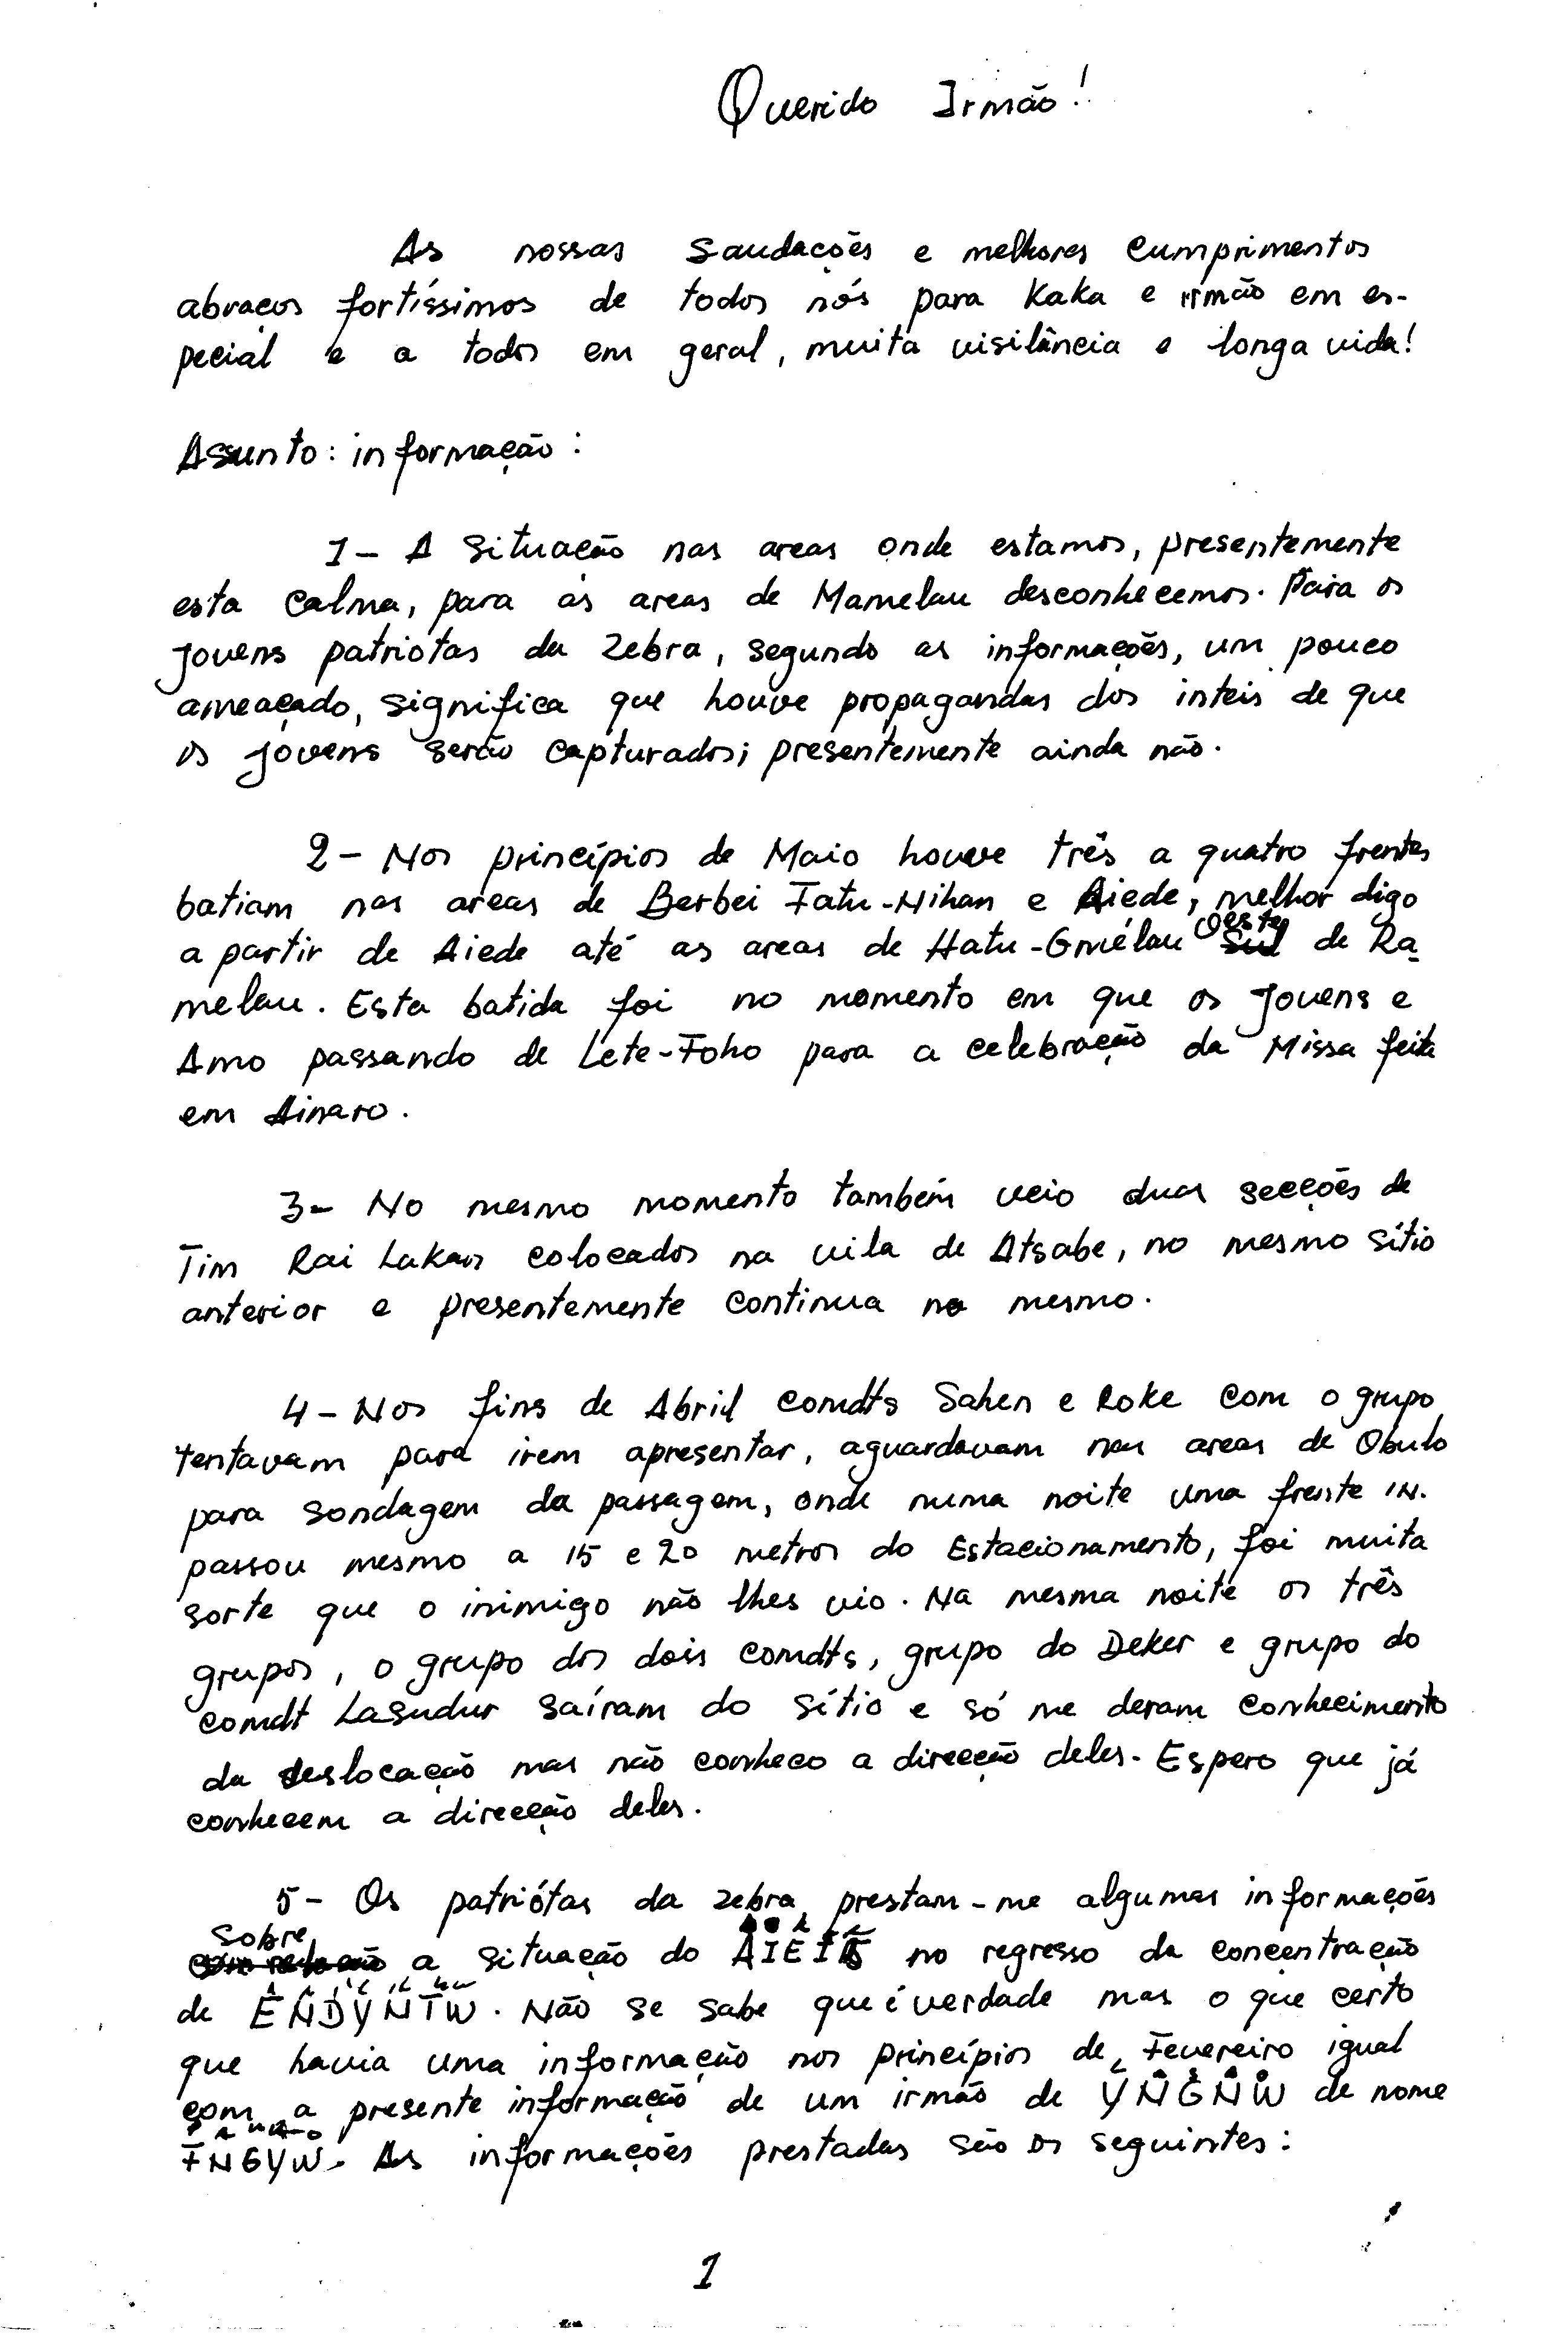 Querido Irmão!
As nossas saudações e melhores cumprimentos
abraços fortíssimos de todos nós para Kaka e irmão em es-
pecial e a todos em geral, muita visilância e longa vida!
Assunto: informação:
1- A situação nas areas onde estamos, presentemente
esta calma, para as areas de Mamelau desconhecemos. Para os
jovens patriotas da zebra, segundo as informações, um pouco
ameaçado, significa que houve propagandas dos inteis de que
os jovens serão capturados; presentemente ainda não.
2- Nos princípios de Maio houve três a quatro frentes
batiam nas areas de Berbei Fatu-Nihan e Aiede, melhor digo
a partir de Aiede até as areas de Hatu-Gmélau oeste de Ra
melau. Esta batida foi no momento em que os Jovens e
Amo passando de Lete-Foho para a celebração da Missa feita
em Ainaro.
3- No mesmo momento também veio duas secções de
Tim Rai Lakan colocados na vila de Atsabe, no mesmo sítio
anterior e presentemente continua no mesmo.
4- Nos fins de Abril comdts Sahen e Roke com o grupo
tentavam para irem apresentar, aguardavam nas areas de Obulo
para sondagem da passagem, onde numa noite uma frente IN.
passou mesmo a 15 e 20 metros do Estacionamento, foi muita
sorte que o inimigo não lhes vio. Na mesma noite os três
grupos, o grupo dos dois comdts, grupo do Deker e grupo do
comdt Lasudur saíram do sítio e só me deram conhecimento
da deslocação mas não conheço a direcção deles. Espero que já
conhecem a direcção deles.
5- Os patriótas da zebra prestam-me algumas informações
sobre a situação do no regresso da concentração
de ENDYNTW. Não se sabe que é verdade mas o que certo
que havia uma informação nos princípios de Fevereiro igual
com a presente informação de um irmão de YNGNW de nome
FNGYW. As informações prestadas são os seguintes:
1